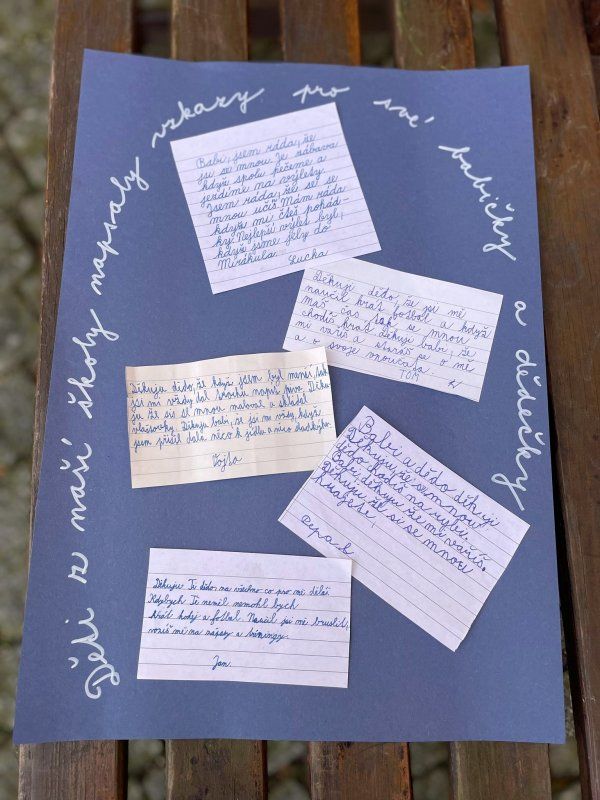 Děti z naší školy napsaly vzkazy pro své babičky a dědečky
Babi, jsem ráda, že
jsi se mnou. Je zábava
když spolu pečeme a
jezdíme na výlety.
Jsem ráda, že se se
mnou učíš. Mám ráda
když mi čteš pohád-
ky. Nejlepší výlet byl,
když jsme jely do
Mirákula. Lucka
Děkuji dědo, že jsi mě
naučil hrát fotbal a když
máš čas tak se mnou
chodíš hrát. Děkuji babi, že
mi vaříš a staráš se o mě
a o svoje vnoučata.
TOM
Děkuju dědo, že když jsem byl menší, tak
jsi mi vždy dal trochu napít piva. Děku-
ju že sis se mnou maloval a skládal
vlaštovky. Děkuju babi, že jsi mi vždy, když
jsem přišel dala něco k jídlu a něco sladkýho.
Vojta
Babi a dědo děkuji
Děkuju, že se mnou
dědo chodíš na ryby.
Babi, děkuju že mi vaříš.
Děkuju, že si se mnou
hrajete.
Pepa
Děkuju Ti dědo na všechno co pro mě děláš
Kdybych Tě neměl nemohl bych
hrát hokej a fotbal. Naučil jsi mě bruslit,
vozíš mě na zápasy a tréningy.
Jan